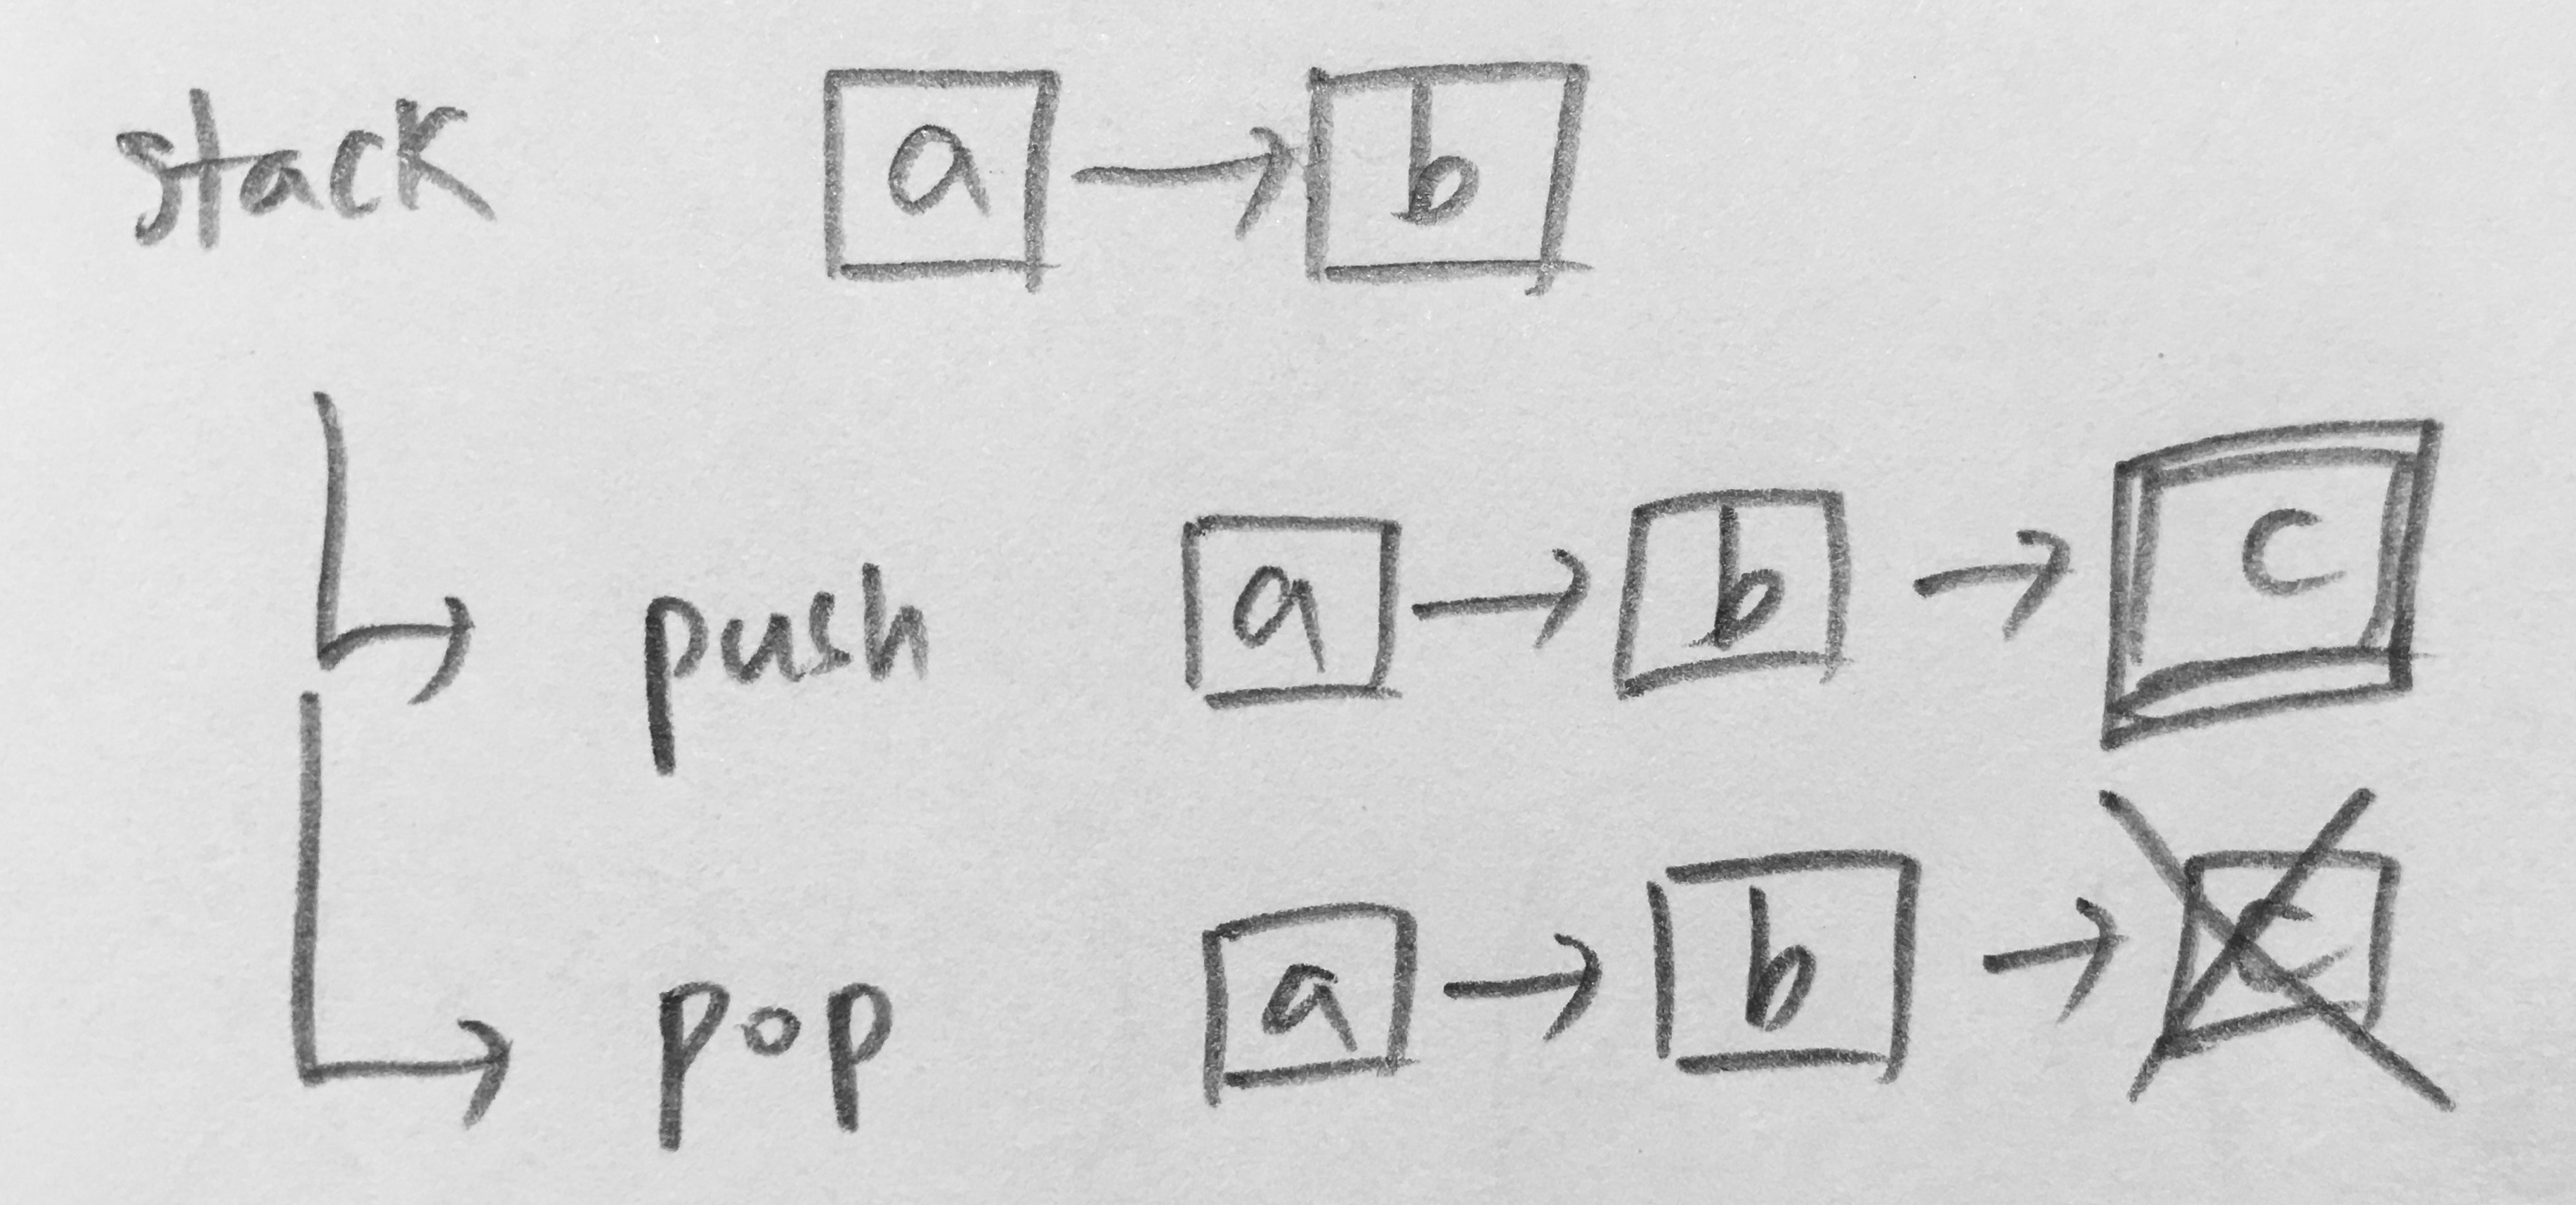 stack a → b
push a → b → c
pop a → b → c